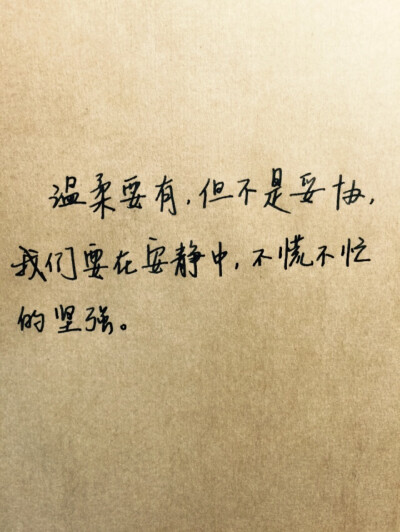 温柔要有，但不是妥协，
我们要在安静中，不慌不忙
的坚强。